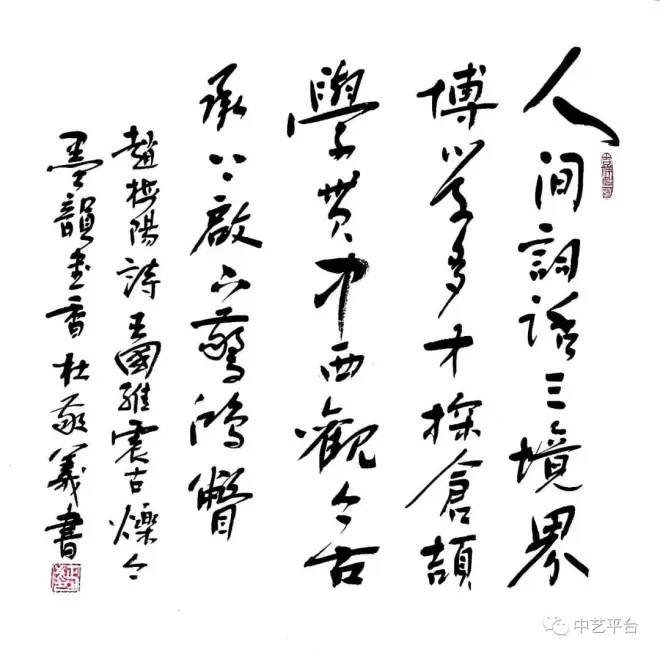 人間詞話三境界
博学多才探倉頡
學貫中西觀今古
承上啟下驚鴻瞥
趙陽詩王國維震古爍今
墨韻書香杜敬義書
中艺平台